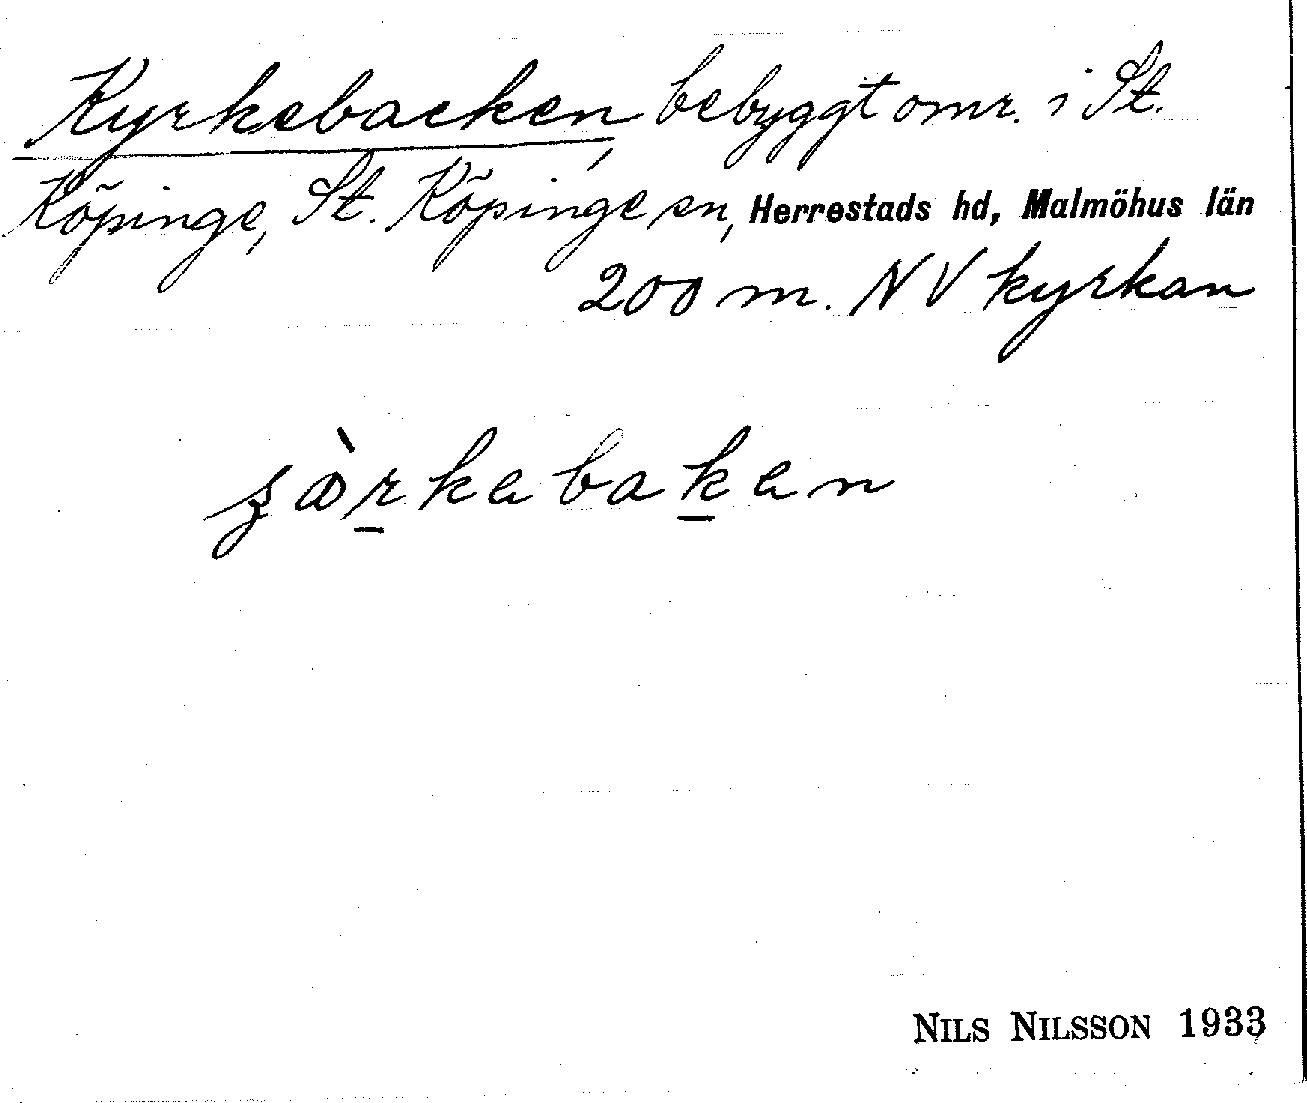 Kyrkebacken, bebyggt omr. i St.
Köpinge, St. Köpinge sn, Herrestads hd, Malmöhus län
200 m. NV kyrkan
NILS NILSSON 1933